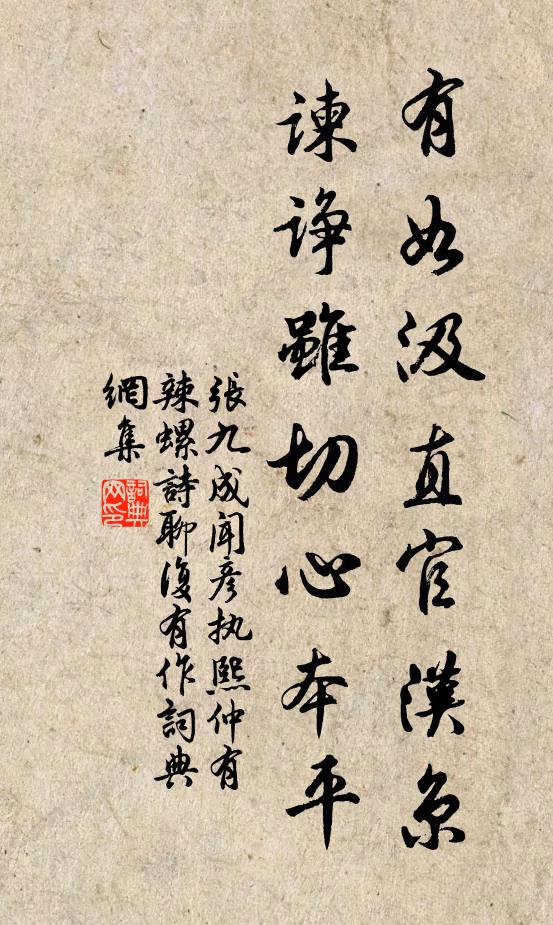 有如汲直官漢京
諫諍雖切心本平
張九成聞彦执熙仲有
辣螺詩聊復有作詞典
網集
詞典
网印